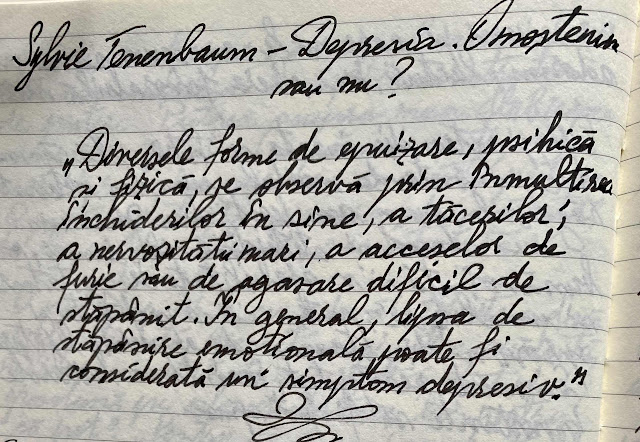 Sylvie Tenenbaum - Depresia. O moștenim
sau nu?
„Diversele forme de epuizare, psihică
și fizică, se observă prin înmulțirea
închiderilor în sine, a tăcerilor,
a nervozității mari, a acceselor de
furie sau de agasare dificil de
stăpânit. În general, lipsa de
stăpânire emoțională poate fi
considerată un simptom depresiv."